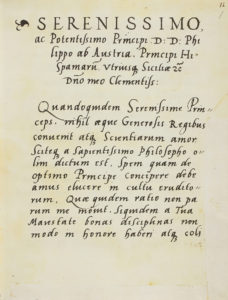 12
SERENISSIMO,
ac Potentissimo Principi D: D: Phi
lippo ab Austria. Principi Hi-
spamarũ. Vtriusq̃ Siciliæ &c
Dño meo Clementiss:
Quandoquidem Serenissime Prin-
ceps. nihil æque Generosis Regibus
convenit atq̃ Scientiarum amor
Sciteq̃ a Sapientissimo Philosopho o
lim dictum est. Spem quam de
optimo Principe concipere debe
amus elucere in cultu erudito-
rum. Quæ quidem ratio non pa
rum me movit. Siquidem a Tua
Maiestate bonas disciplinas non
modo in honore haberi atq̃ coli